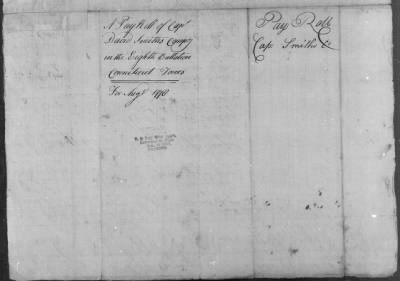 A Pay Roll of Capt
David Smiths Compy
in the Eighth Battalion
Connecticut Forces
For Augt 1778
Pay Roll
Capt Smiths Co